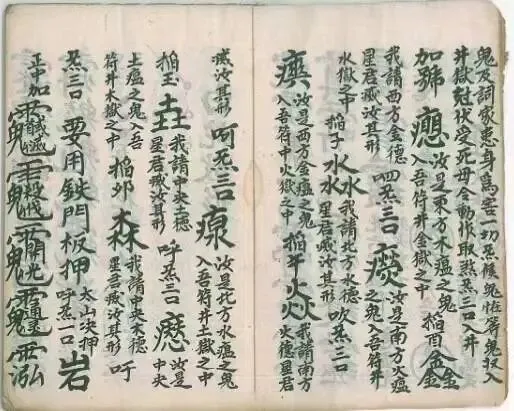 鬼及詞家患身爲害一切炁候鬼怪等鬼収入
井獄 伏受死毋令動作取炁炁三口入井
加號 汝是東方木瘟之鬼
入吾符井金獄之中 掐酉 鑫
我請西方金德
星君臧汝其形 呬炁三口 汝是南方火瘟
之鬼入吾符井
水獄之中 掐子 㵘 我請北方水德
星君臧汝其形 吹炁三口
汝是西方金瘟之鬼
入吾符中火獄之中 掐午 燚 我請南方
火德星君
臧汝其形 呵炁三口 汝是北方水瘟之鬼
入吾符井土獄之中
掐玉 壵 我請中央土德
星君臧汝其形 呼炁三口 汝是
中央
土瘟之鬼入吾
符井木獄之中 掐卯 森 我請中央木德
星君臧汝其形 吁
炁三口 要用鉄門板押 太山決押
呼炁一口 岩
正中加